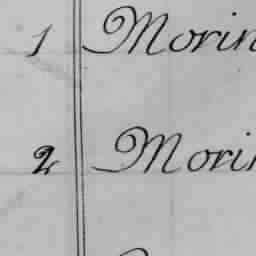 1 Morin
2 Morin